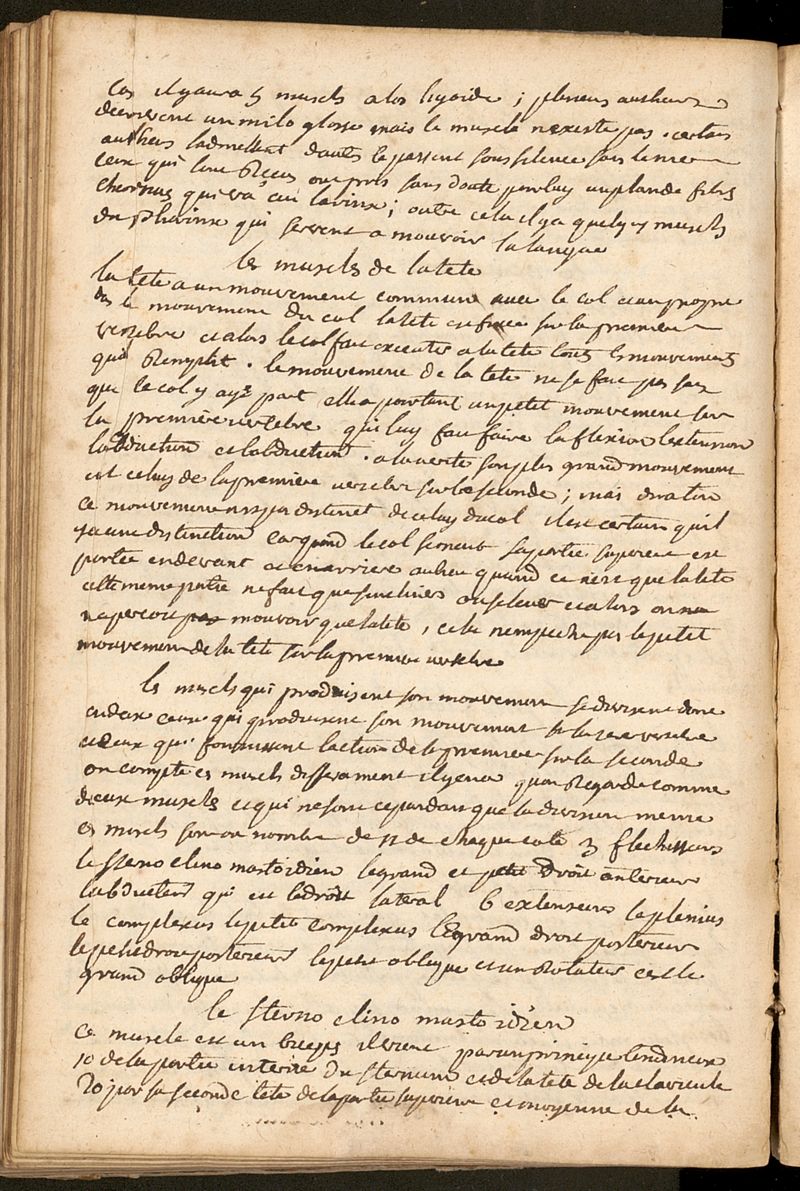 cas il y aura 5 muscls a los hyoide ; plusieurs autheurs
decrivent un milo glosse mais le muscle nexiste pas . certains
autheurs ladmettent dautres le passent sous silence sans le nier
ceux qui lont Reçus ont pris sans doute pour luy un plan de fibres
charnues qui va au larinx ; outre cela il ya quelques muscls
du Pharinx qui servent a mouvoir la langue
les muscles de la tete
la tete a un mouvement commun avec le col et un propre
dans le mouvement du col la tete est fixee sur la premiere
vertebre et alors le col fait executer a la tete touts les mouvements
quil Remplit . le mouvement de la tete ne se fait pas sans
que le col y aye part elle a pourtant un petit mouvement sur
la premiere vertebre qui luy fait faire la flexion lextension
labduction et labduction . a la verité son plus grand mouvement
est celuy de la premiere vertebre sur la seconde ; mais dira ton
ce mouvement nest pas distinct de celuy du col il est certain quil
ya une distinction car quand le col se meut sa partie superieure est
portée en devant et en arriere au lieu quand ce nest que la tete
cette meme partie ne fait que sincliner ou selever et alors on ne
napercoit pas mouvoir que la tete , cela nempeche pas le petit
mouvement de la tete sur la premiere vertebre
les muscls qui produisent son mouvement se divisent donc
en deux ceux qui produisent son mouvement sur la 1ere vertebre
et ceux qui fournissent laction de la premiere sur la seconde
on compte ces muscls differament il y en a quon Regarde comme
deux muscls et qui ne sont cependant que la division meme
ces muscls sont au nombre de 11 de chaque coté 3 flechisseurs
le sterno clino mastoidien le grand et petit droit anterieur
labducteur qui est le droit lateral 6 extenseurs le splenius
le complexus le petit complexus le grand droit posterieur
le petit droit posterieur le petit oblique et un Rotateur cest le
grand oblique
le sterno clino mastoidien
ce muscle est un biceps il vient par un principe tendineux
1o de la partie interne du sternum et de la tete de la clavicule
2o par sa seconde tete de la partie superieure et moyenne de la